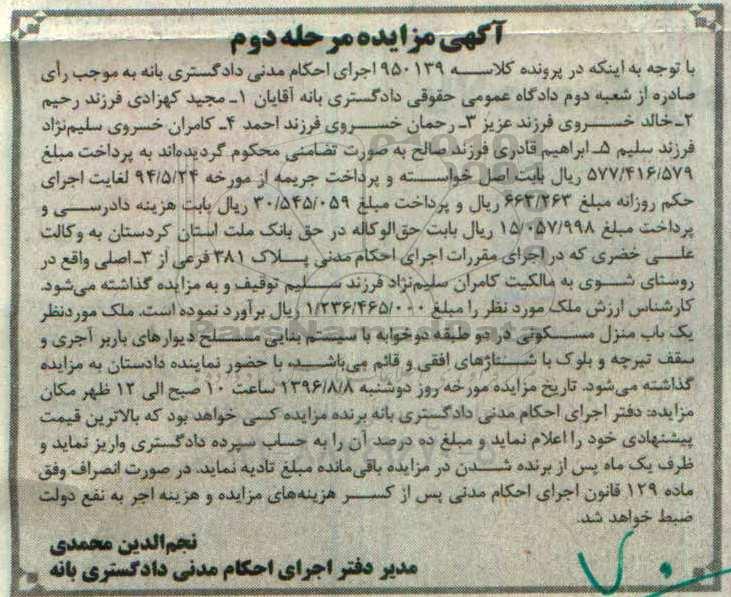 آگهی مزایده مرحله دوم
با توجه به اینکه در پرونده کلاسه ۹۵۰۱۳۹ اجرای احکام مدنی دادگستری بانه به موجب رأی
صادره از شعبه دوم دادگاه عمومی حقوقی دادگستری بانه آقایان ۱ـ مجید کهزادی فرزند رحیم
۲ـ خالد خسروی فرزند عزیز ۳ـ رحمان خسروی فرزند احمد ۴ـ کامران خسروی سلیم‌نژاد
فرزند سلیم ۵ـ ابراهیم قادری فرزند صالح به صورت تضامنی محکوم گردیده‌اند به پرداخت مبلغ
۵۷۷/۴۱۶/۵۷۹ ریال بابت اصل خواسته و پرداخت جریمه از مورخه ۹۴/۵/۲۴ لغایت اجرای
حکم روزانه مبلغ ۶۶۳/۲۶۳ ریال و پرداخت مبلغ ۳۰/۵۴۵/۰۵۹ ریال بابت هزینه دادرسی و
پرداخت مبلغ ۱۵/۰۵۷/۹۹۸ ریال بابت حق‌الوکاله در حق بانک ملت استان کردستان به وکالت
علی خضری که در اجرای مقررات اجرای احکام مدنی پلاک ۳۸۱ فرعی از ۳ـ اصلی واقع در
روستای شوی به مالکیت کامران سلیم‌نژاد فرزند سلیم توقیف و به مزایده گذاشته می‌شود.
کارشناس ارزش ملک مورد نظر را مبلغ ۱/۲۳۶/۴۶۵/۰۰۰ ریال برآورد نموده است. ملک موردنظر
یک باب منزل مسکونی در دو طبقه دوخوابه با سیستم بنایی مسلح دیوارهای باربر آجری و
سقف تیرچه و بلوک با شناژهای افقی و قائم می‌باشد، با حضور نماینده دادستان به مزایده
گذاشته می‌شود. تاریخ مزایده مورخه روز دوشنبه ۱۳۹۶/۸/۸ ساعت ۱۰ صبح الی ۱۲ ظهر مکان
مزایده: دفتر اجرای احکام مدنی دادگستری بانه برنده مزایده کسی خواهد بود که بالاترین قیمت
پیشنهادی خود را اعلام نماید و مبلغ ده درصد آن را به حساب سپرده دادگستری واریز نماید و
ظرف یک ماه پس از برنده شدن در مزایده باقی‌مانده مبلغ تادیه نماید. در صورت انصراف وفق
ماده ۱۲۹ قانون اجرای احکام مدنی پس از کسر هزینه‌های مزایده و هزینه اجر به نفع دولت
ضبط خواهد شد.
نجم‌الدین محمدی
مدیر دفتر اجرای احکام مدنی دادگستری بانه
۷۰
ParsNamadData